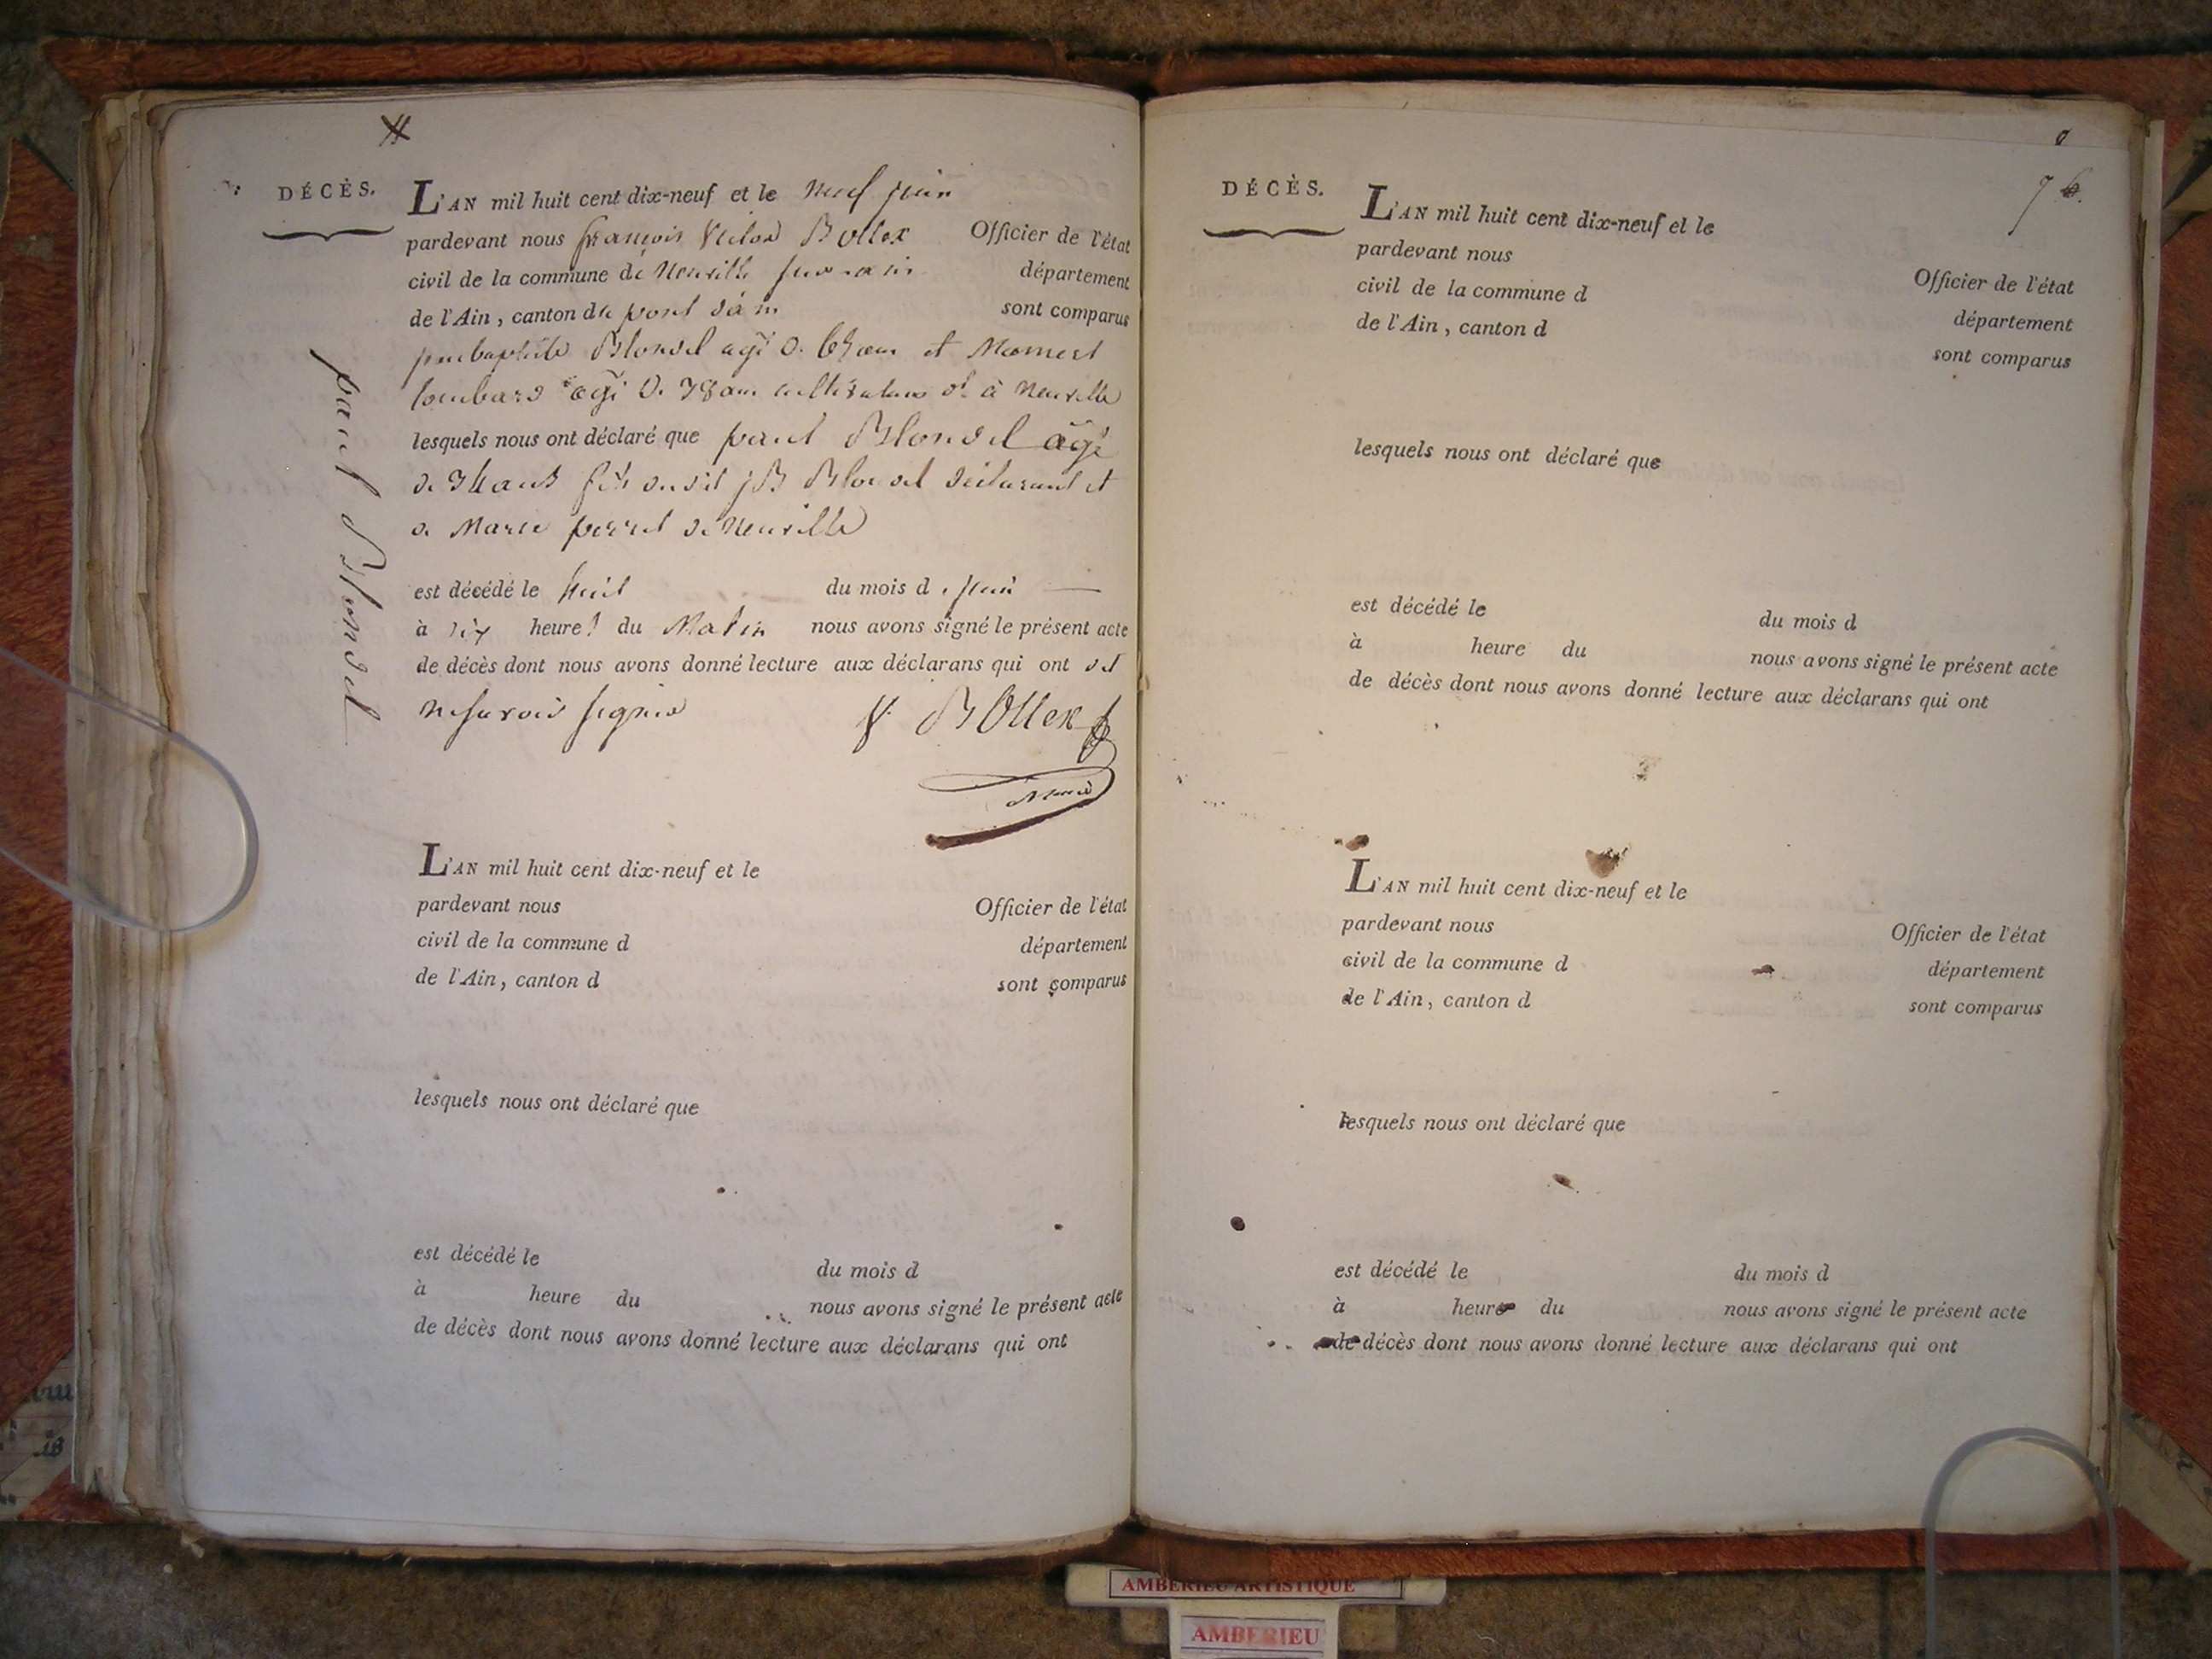 DÉCÈS.
L'AN mil huit cent dix-neuf et le neuf juin
pardevant nous françois Victor Bollex Officier de l'état
civil de la commune de Neuville sur ain département
de l'Ain, canton du pont d'ain sont comparus
jnebaptiste Blondel agé d. ans et
Lombard agé d. 38 ans cultivateurs dt à Neuville
lesquels nous ont déclaré que paul Blondel agé
d. 34 ans fils dudit jB Blondel déclarant et
d. Marie perret de Neuville
est décédé le huit du mois d. juin
à dix heures du Matin nous avons signé le présent acte
de décès dont nous avons donné lecture aux déclarans qui ont dit
ne savoir signer V. BOllex
Maire
paul Blondel
L'AN mil huit cent dix-neuf et le
pardevant nous Officier de l'état
civil de la commune d département
de l'Ain, canton d sont comparus
lesquels nous ont déclaré que
est décédé le du mois d
à heure du nous avons signé le présent acte
de décès dont nous avons donné lecture aux déclarans qui ont
DÉCÈS.
L'AN mil huit cent dix-neuf et le
pardevant nous Officier de l'état
civil de la commune d département
de l'Ain, canton d sont comparus
lesquels nous ont déclaré que
est décédé le du mois d
à heure du nous avons signé le présent acte
de décès dont nous avons donné lecture aux déclarans qui ont
L'AN mil huit cent dix-neuf et le
pardevant nous Officier de l'état
civil de la commune d département
de l'Ain, canton d sont comparus
lesquels nous ont déclaré que
est décédé le du mois d
à heure du nous avons signé le présent acte
de décès dont nous avons donné lecture aux déclarans qui ont
AMBERIEU ARTISTIQUE
AMBERIEU